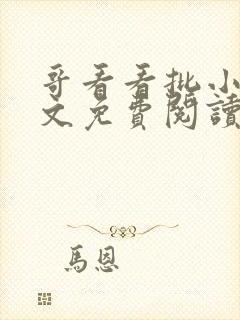 哥看看批小
文免費閱讀
馬恩